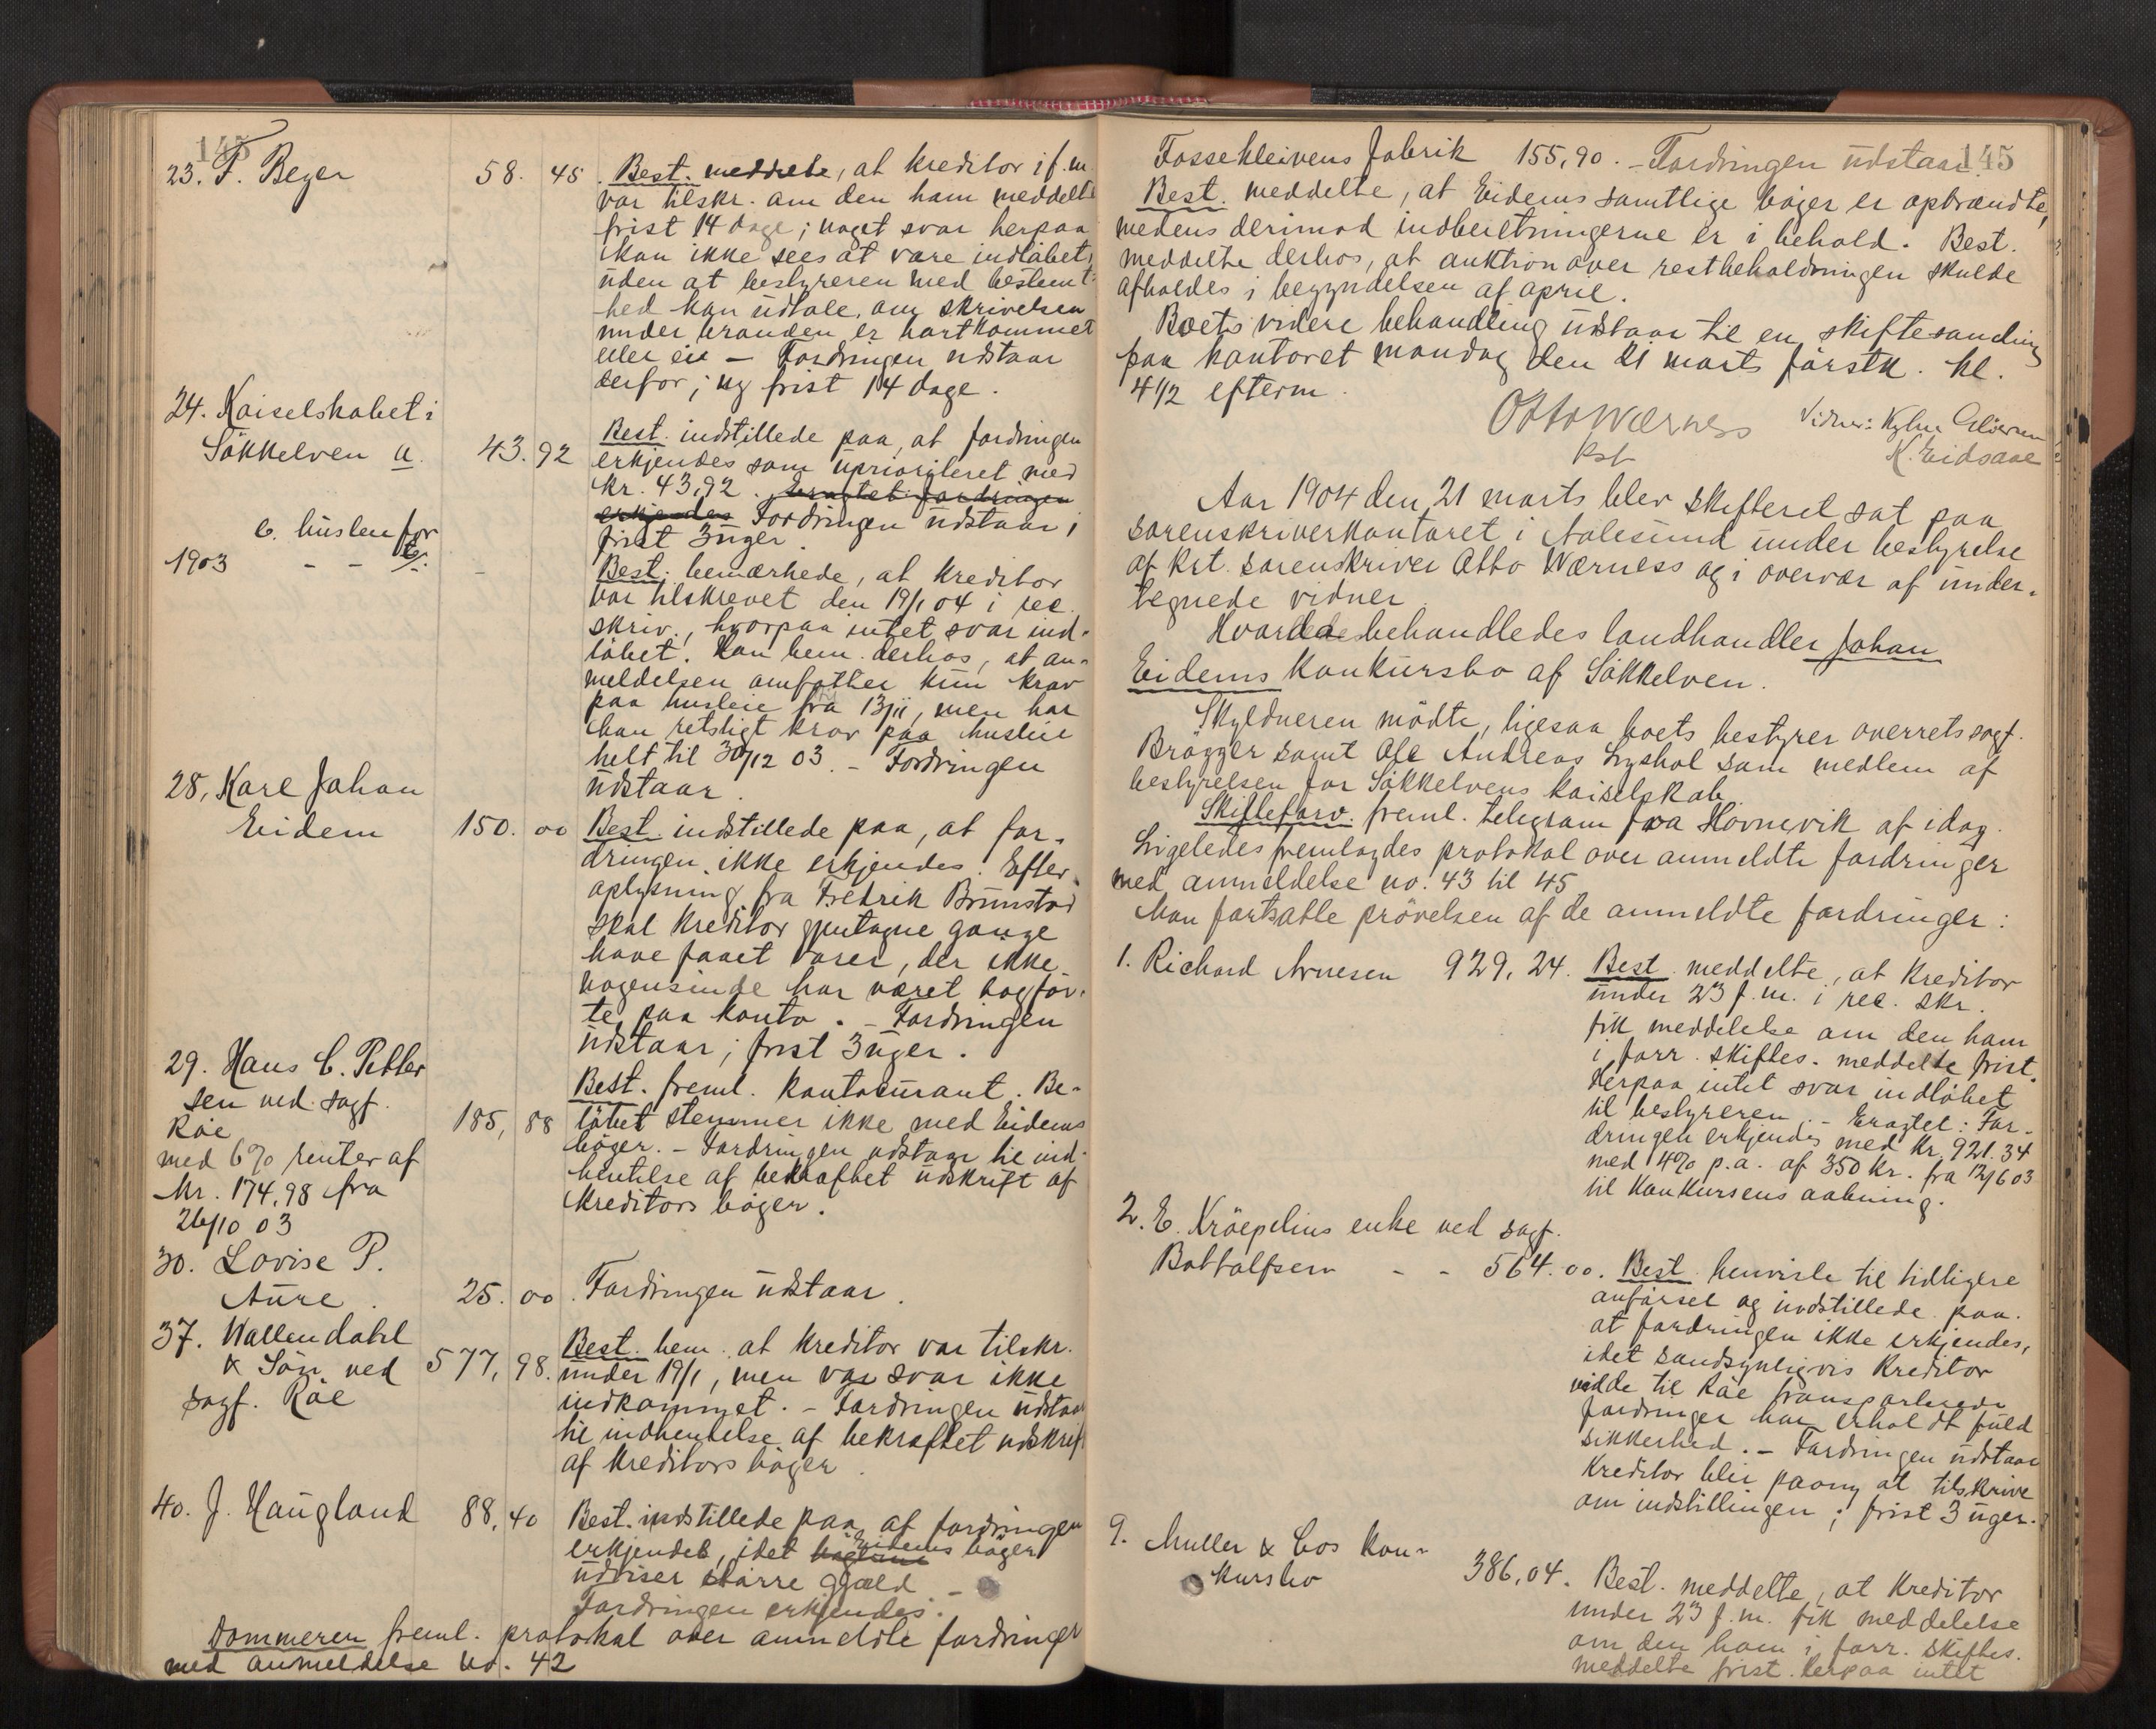 145
23. F. Beyer 58. 45. Best. meddelte, at kreditor i f. m.
var tilskr. om den ham meddelte
frist 14 dage; noget svar herpaa
kan ikke sees at være indløbet,
uden at bestyreren med bestemt-
hed kan udtale, om skrivelsen
under branden er bortkommet
eller ei — Fordringen udstaar
derfor; ny frist 14 dage.
24. Kaiselskabet i
Søkkelven u. 43.92
Best. indstillede paa, at fordringen
erkjendes som uprioriteret med
kr. 43,92. Eragtet: fordringen
erkjendes Fordringen udstaar;
frist 3 uger.
c. husleu for
1903 - - tr. -
Best. bemærkede, at kreditor
var tilskrevet den 19/1 04 i rec.
skriv., hvorpaa intet svar ind-
løbet. Han bem. derhos, at an-
meldelsen omfatter kun krav
paa husleie fra 13/11, men har
han retsligt krav paa husleie
helt til 30/12 03. — Fordringen
udstaar.
28, Karl Johan
Eidem 150. 00
Best. indstillede paa, at for-
dringen ikke erkjendes. Efter
oplysning fra Fredrik Brunstad
skal kreditor gjentagne gange
have faaet varer, der ikke
nogensinde har været bogfør-
te paa konto. — Fordringen
udstaar; frist 3 uger.
29. Hans C. Petter
sen ved. sagf.
Råe 185, 88
med 6% renter af
kr. 174,98 fra
26/10 03
Best. freml. kontokurant. Be-
løbet stemmer ikke med Eidems
bøger. — Fordringen udstaar til ind-
hentelse af bekræftet udskrift af
kreditors bøger.
30. Lovise P.
Aure. 25. 00. Fordringen udstaar.
37. Wallendahl
& Søn ved 577, 98.
sagf. Råe
Best. bem. at kreditor var tilskr.
under 19/1, men var svar ikke
indkommet. — Fordringen udstaar
til indhentelse af bekræftet udskrift
af kreditors bøger.
40. J. Haugland 88, 40
Best. indstillede paa at fordringen
erkjendes, idet Eidems bøger
udviser større gjæld —
Fordringen erkjendes.
Dommeren freml. protokol over anmeldte fordringer
med anmeldelse no. 42
145
Fossekleivens Fabrik 155,90. — Fordringen udstaar.
Best. meddelte, at Eidems samtlige bøger er opbrændte,
medens derimod indberetningerne er i behold. Best.
meddelte derhos, at auktion over restbeholdningen skulde
afholdes i begyndelsen af april.
Boets videre behandling udstaar til en skiftesamling
paa kontoret mandag den 21 marts førstk. kl.
4 1/2 efterm.
Otto Wærness Vidner:
kst K. Eidsaae
Aar 1904 den 21 marts blev skifteret sat paa
sorenskriverkontoret i Aalesund under bestyrelse
af kst. sorenskriver Otto Wærness og i overvær af under-
tegnede vidner.
Hvorda behandledes landhandler Johan
Eidems konkursbo af Søkkelven.
Skyldneren mødte, ligesaa boets bestyrer overretssagf.
Brøgger samt Ole Andreas Lyshol som medlem af
bestyrelsen for Søkkelvens kaiselskab.
Skifteforv. freml. telegram fra Hovnevik af idag.
Ligeledes fremlagdes protokol over anmeldte fordringer
med anmeldelse no. 43 til 45
Man fortsatte prøvelsen af de anmeldte fordringer:
1. Richard Arnesen 929, 24. Best. meddelte, at kreditor
under 23 f. m. i rec. skr.
fik meddelelse om den ham
i forr. skiftes. meddelte frist.
Herpaa intet svar indløbet
til bestyreren. — Eragtet: For-
dringen erkjendes med kr. 921.34
med 4% p.a. af 350 kr. fra 12/6 03
til konkursens aabning.
2. E. Kräepelius enke ved sagf.
Bottolfsen - - 564. 00. Best. henviste til tidligere
anførsel og indstillede paa.
at fordringen ikke erkjendes,
idet sandsynligvis kreditor
ved de til Råe transporterede
fordringer har erholdt fuld
sikkerhed. — Fordringen udstaar
Kreditor blir paany at tilskrive
om indstillingen; frist 3 uger.
9. Muller & Cos kon-
kursbo 386,04. Best. meddelte, at kreditor
under 23 f. m. fik meddelelse
om den ham i forr. skiftes.
meddelte frist. Herpaa intet